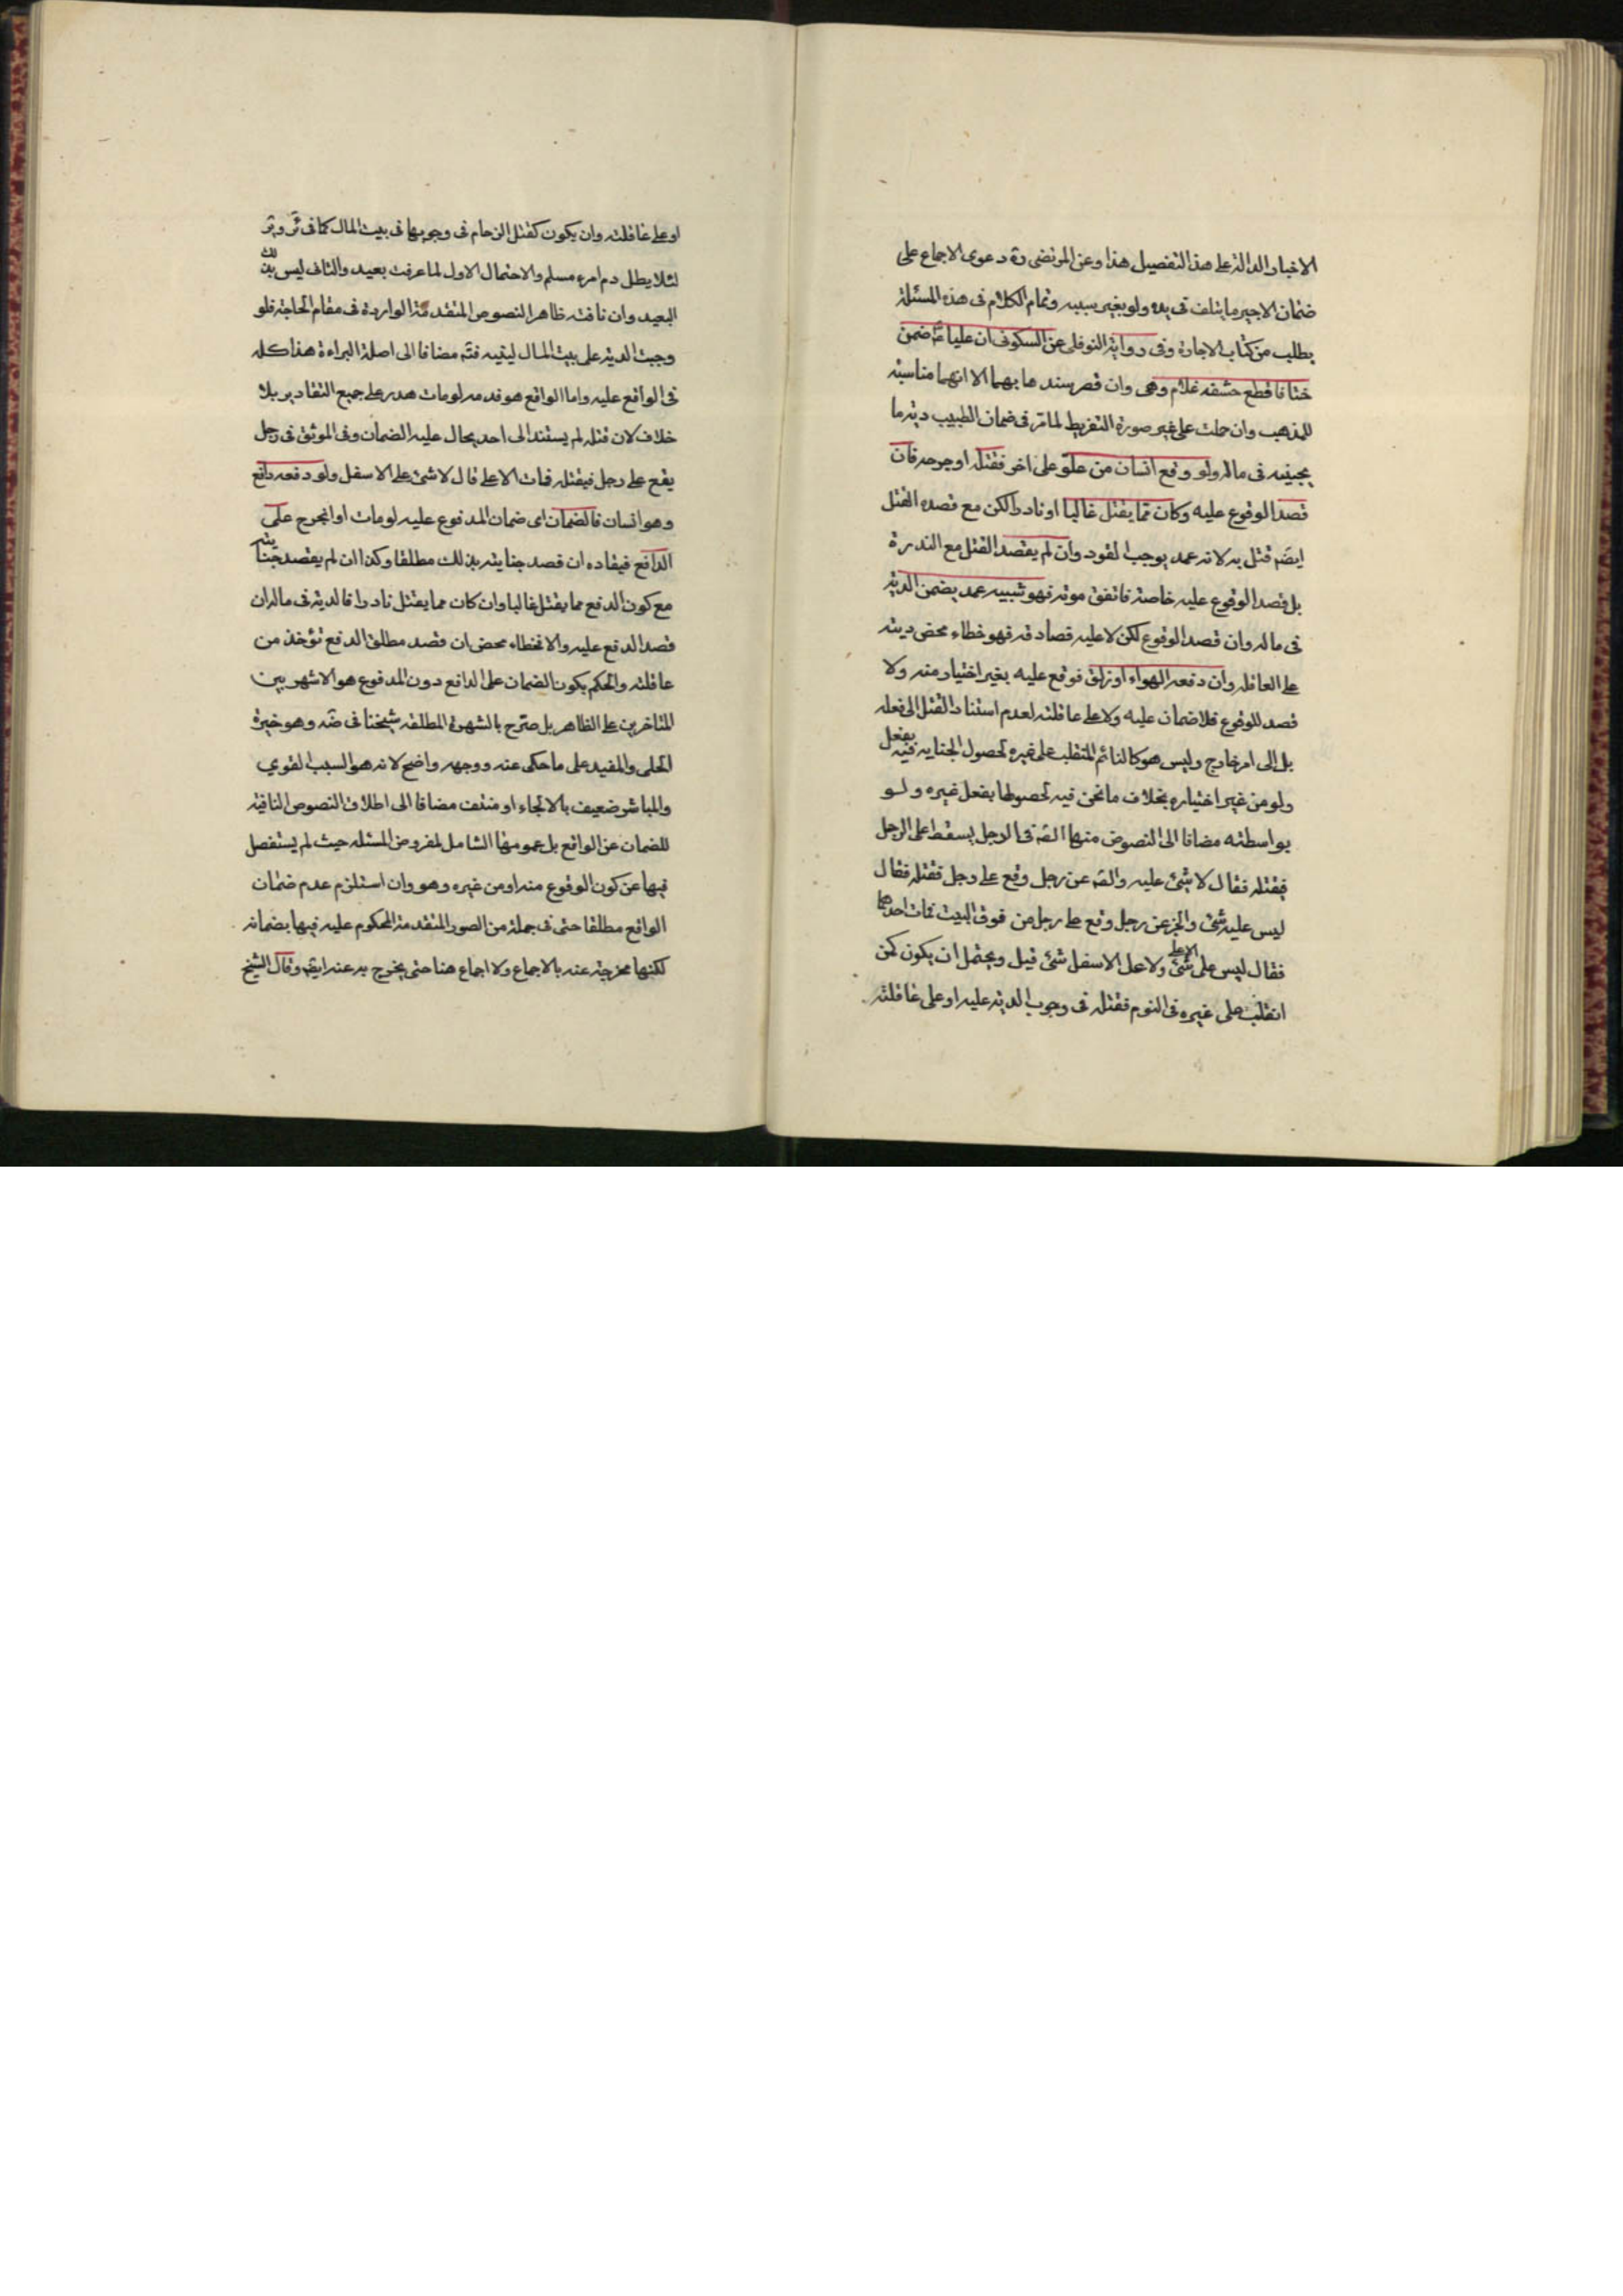 الاخبار الدالة على هذا التفصيل هذا وعن المرتضى ره دعوى الاجماع على
ضمان الاجير ما يتلف فى يده ولو بغير سببه وتمام الكلام فى هذه المسئلة
يطلب من كتاب الاجارة وفى رواية النوفلى عن السكونى ان عليا ع ضمن
ختانا قطع حشفه غلام وهى وان قصر سندها بهما الا انهما مناسبة
للمذهب وان حملت على غير صورة التفريط لما مر فى ضمان الطبيب دية ما
يجنيه فى ماله ولو وقع انسان من علو على اخر فقتله او جرحه فان
قصد الوقوع عليه وكان مما يقتل غالبا او نادرا لكن مع قصده القتل
ايضَم قتل به لانه عمد يوجب القود وان لم يقصد القتل مع الندرة
بل قصد الوقوع عليه خاصة فاتفق موته فهو شبيه عمد يضمن الدية
فى ماله وان قصد الوقوع لكن لا عليه فصادفه فهو خطاء محض ديته
على العاقله وان دفعه الهواء او زلق فوقع عليه بغير اختيار منه ولا
قصد للوقوع فلا ضمان عليه ولا على عاقلته لعدم استناد القتل الى فعله
بل الى امر خارج وليس هو كالنائم المنقلب على غيره لحصول الجنايه فيه بفعل
ولو من غير اختياره بخلاف ما نحن فيه لحصولها بفعل غيره ولو
بواسطته مضافا الى النصوص منها الصَم فى الرجل يسقط على الرجل
فيقتله فقال لا شئ عليه والصَم عن رجل وقع على رجل فقتله فقال
ليس عليه شئ والخبر عن رجل وقع على رجل من فوق البيت فمات احدهما
فقال ليس على الاعلى شئ ولا على الاسفل شئ قيل ويحتمل ان يكون كمن
انقلب على غيره فى النوم فقتله فى وجوب الدية عليه او على عاقلته
او على عاقلته وان يكون كقتل الزحام فى وجوبها فى بيت المال كما فى ئر وير
لئلا يطل دم امرء مسلم والاحتمال الاول لما عرفت بعيد والثانى ليس بذلك
البعيد وان نافته ظاهر النصوص المتقدمة الواردة فى مقام الحاجة فلو
وجبت الدية على بيت المال لبينه فتَم مضافا الى اصلة البراءة هذا كله
فى الواقع عليه واما الواقع هو فدمه لو مات هدر على جميع التقادير بلا
خلاف لان قتله لم يستند الى احد يحال عليه الضمان وفى الموثق فى رجل
يقع على رجل فيقتله فمات الاعلى قال لا شئ على الاسفل ولو دفعه دافع
وهو انسان فالضمان اى ضمان المدفوع عليه لو مات او انجرح على
الدافع فيقاد ه ان قصد جنايته بذلك مطلقا وكذا ان لم يقصد جنايته
مع كون الدفع مما يقتل غالبا وان كان مما يقتل نادرا فالدية فى ماله ان
قصد الدفع عليه والا فخطاء محض ان قصد مطلق الدفع تؤخذ من
عاقلته والحكم بكون الضمان على الدافع دون المدفوع هو الاشهر بين
المتاخرين على الظاهر بل صرّح بالشهرة المطلقه شيخنا فى ضَه وهو خيرة
الحلى والمفيد على ما حكى عنه ووجهه واضح لانه هو السبب القوي
والمباشر ضعيف بالالجاء او منتف مضافا الى اطلاق النصوص النافية
للضمان عن الواقع بل عمومها الشامل لمفروض المسئله حيث لم يستفصل
فيها عن كون الوقوع منه او من غيره وهو وان استلزم عدم ضمان
الواقع مطلقا حتى فى جملة من الصور المتقدمة المحكوم عليه فيها بضمانه
لكنها مخرجة عنه بالاجماع ولا اجماع هنا حتى يخرج به عنه ايضَم وقال الشيخ